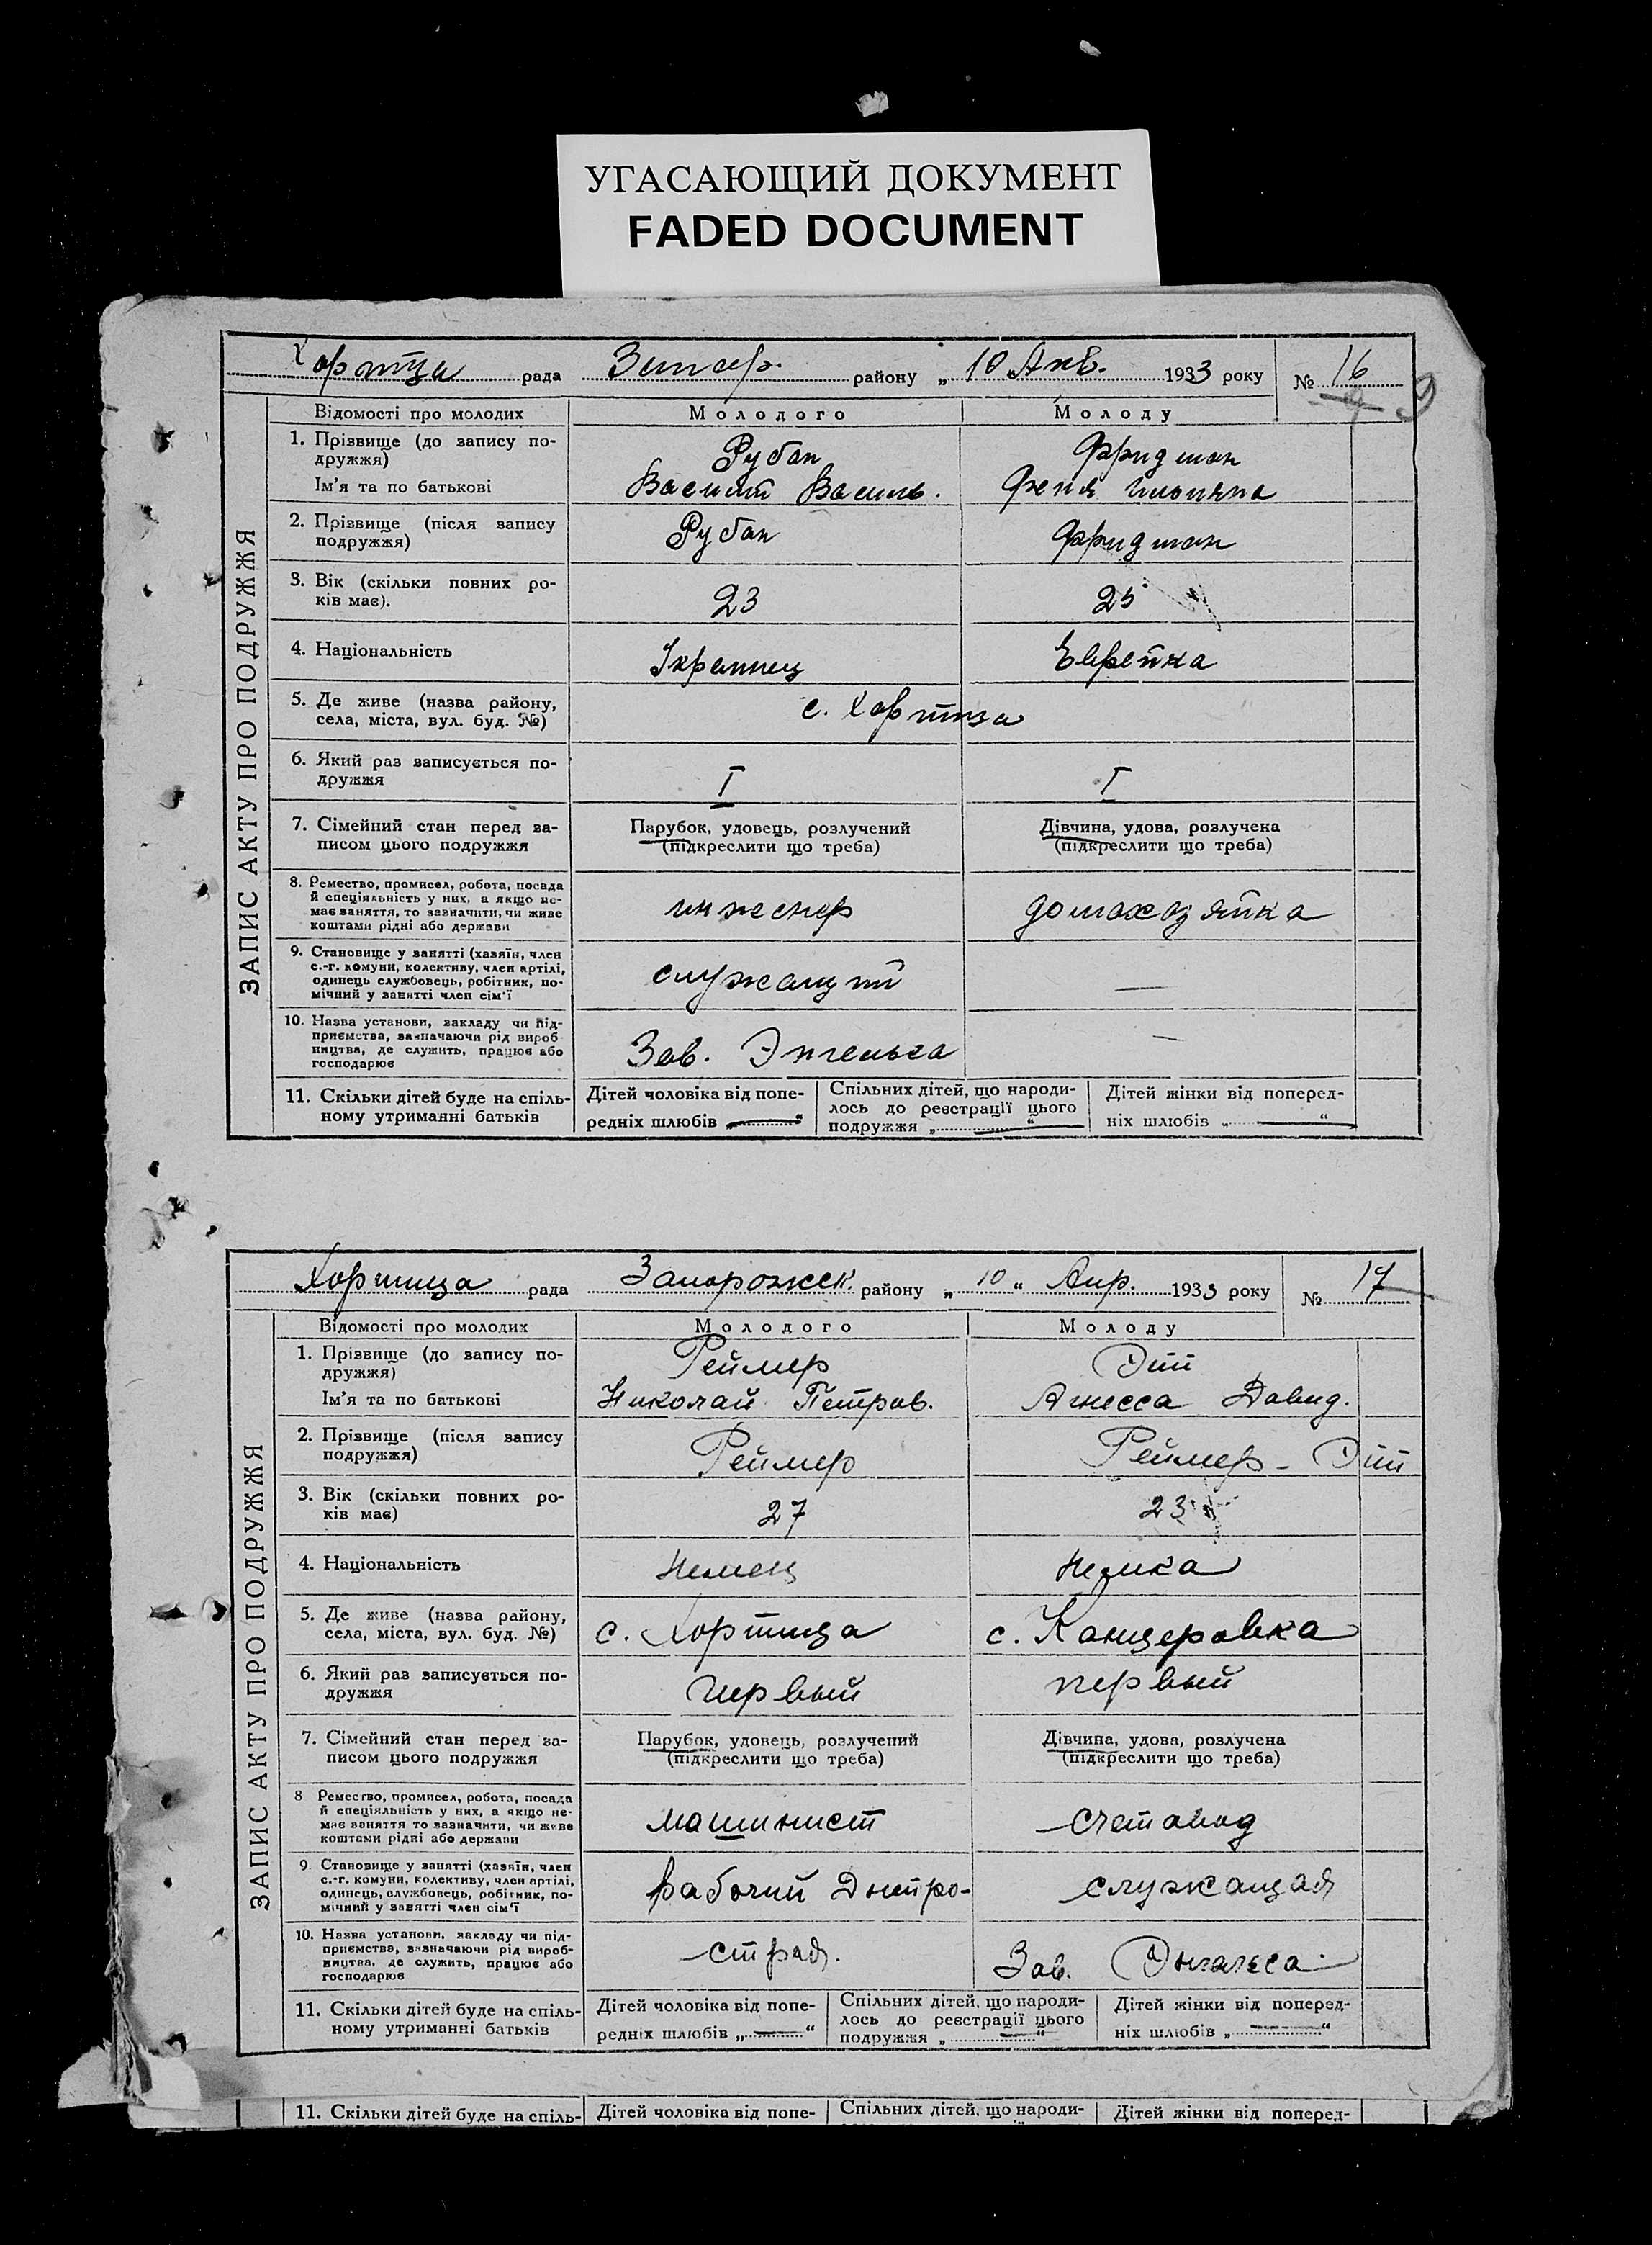 УГАСАЮЩИЙ ДОКУМЕНТ
FADED DOCUMENT
Хортица рада Запор. району „ 10 “ Янв. 1933 року № 16
9
ЗАПИС АКТУ ПРО ПОДРУЖЖЯ
Відомості про молодих Молодого Молоду
1. Прізвище (до запису по- Рубан Фридман
дружжя)
Ім'я та по батькові Василий Василь. Феня
2. Прізвище (після запису Рубан Фридман
подружжя)
3. Вік (скільки повних ро- 23 25
ків має).
4. Національність Украинец Еврейка
5. Де живе (назва району, с. Хортица
села, міста, вул. буд. №)
6. Який раз записується по- I I
дружжя
7. Сімейний стан перед за- Парубок, удовець, розлучений Дівчина, удова, розлучека
писом цього подружжя (підкреслити що треба) (підкреслити що треба)
8. Ремество, промисел, робота, посада инженер домохозяйка
й спеціяльність у них, а якщо не-
має заняття, то зазначити, чи живе
коштами рідні або держави
9. Становище у занятті (хазяїн, член служащий —
с.-г. комуни, колективу, член артілі,
одинець службовець, робітник, по-
мічний у занятті член сім'ї
10. Назва установи, закладу чи під- Зав. Энгельса —
приємства, зазначаючи рід вироб
ництва, де служить, працює або
господарює
11. Скільки дітей буде на спіль- Дітей чоловіка від попе- Спільних дітей, що народи- Дітей жінки від поперед-
ному утриманні батьків редніх шлюбів „ — “ лось до реєстрації цього ніх шлюбів „ — “
подружжя „ — “
Хортица рада Запорожск. району „ 10 “ Апр. 1933 року № 17
ЗАПИС АКТУ ПРО ПОДРУЖЖЯ
Відомості про молодих Молодого Молоду
1. Прізвище (до запису по- Реймер Дик
дружжя)
Ім'я та по батькові Николай Петров. Агнесса Давид.
2. Прізвище (після запису Реймер Реймер -
подружжя)
3. Вік (скільки повних ро- 27 23
ків має)
4. Національність Немец Немка
5. Де живе (назва району, с. Хортица с. Канцеровка
села, міста, вул. буд. №)
6. Який раз записується по- первый первый
дружжя
7. Сімейний стан перед за- Парубок, удовець, розлучений Дівчина, удова, розлучена
писом цього подружжя (підкреслити що треба) (підкреслити що треба)
8 Ремество, промисел, робота, посада машинист счетовод
й спеціяльність у них, а якщо не-
має заняття то зазначити, чи живе
коштами рідні або держави
9. Становище у занятті (хазяїн, член рабочий Днепро- служащая
с.-г. комуни, колективу, член артілі,
одинець, службовець, робітник, по-
мічний у занятті член сім'ї
10. Назва установи, закладу чи під- строя. Зав. Энгельса
приємства, зазначаючи рід вироб-
ництва, де служить, працює або
господарює
11. Скільки дітей буде на спіль- Дітей чоловіка від попе- Спільних дітей, що народи- Дітей жінки від поперед-
ному утриманні батьків редніх шлюбів „ — “ лось до реєстрації цього ніх шлюбів „ — “
подружжя „ — “
11. Скільки дітей буде на спіль- Дітей чоловіка від попе- Спільних дітей, що народи- Дітей жінки від поперед-